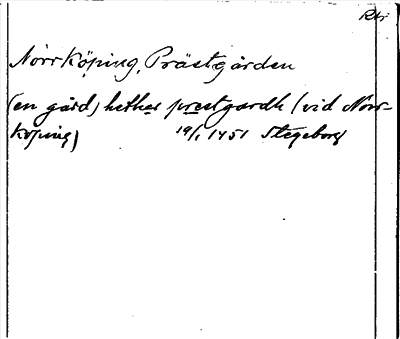 Rhr
Norrköping, Prästgården
(en gård) hether prestgardh (vid Norr-
köping) 19/1 1451 Stegeborg